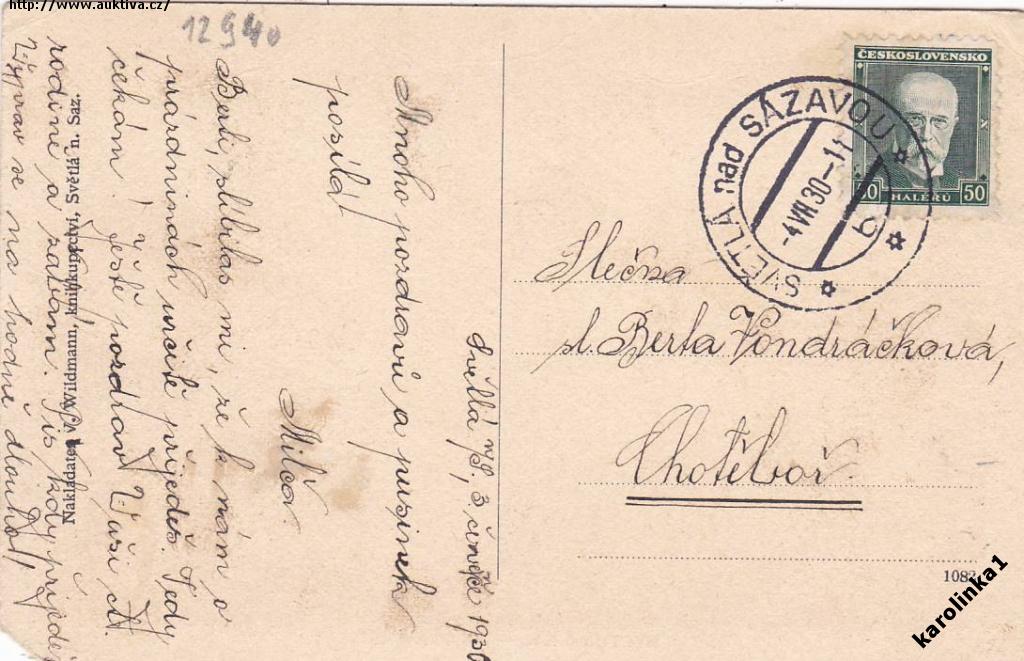 http://www.auktiva.cz/
12940
Světlá n/S., 3. července 1930
Mnoho pozdravů a pusinek
posílá
Milča
Berti, slíbilas mi, že k nám o
prázdninách určitě přijedeš. Tedy
čekám! Ještě pozdrav Vaší ct.
rodině a zatím. Piš kdy přijedeš
na hodně dlouho!
Nakladatel V. Wildmann, knihkupectví, Světlá n. Saz.
ČESKOSLOVENSKO
50 HALÉŘŮ 50
SVĚTLÁ nad SÁZAVOU
-4.VII.30-11
b
Slečna
sl. Berta Vondráčková,
Chotěboř.
108
karolinka1